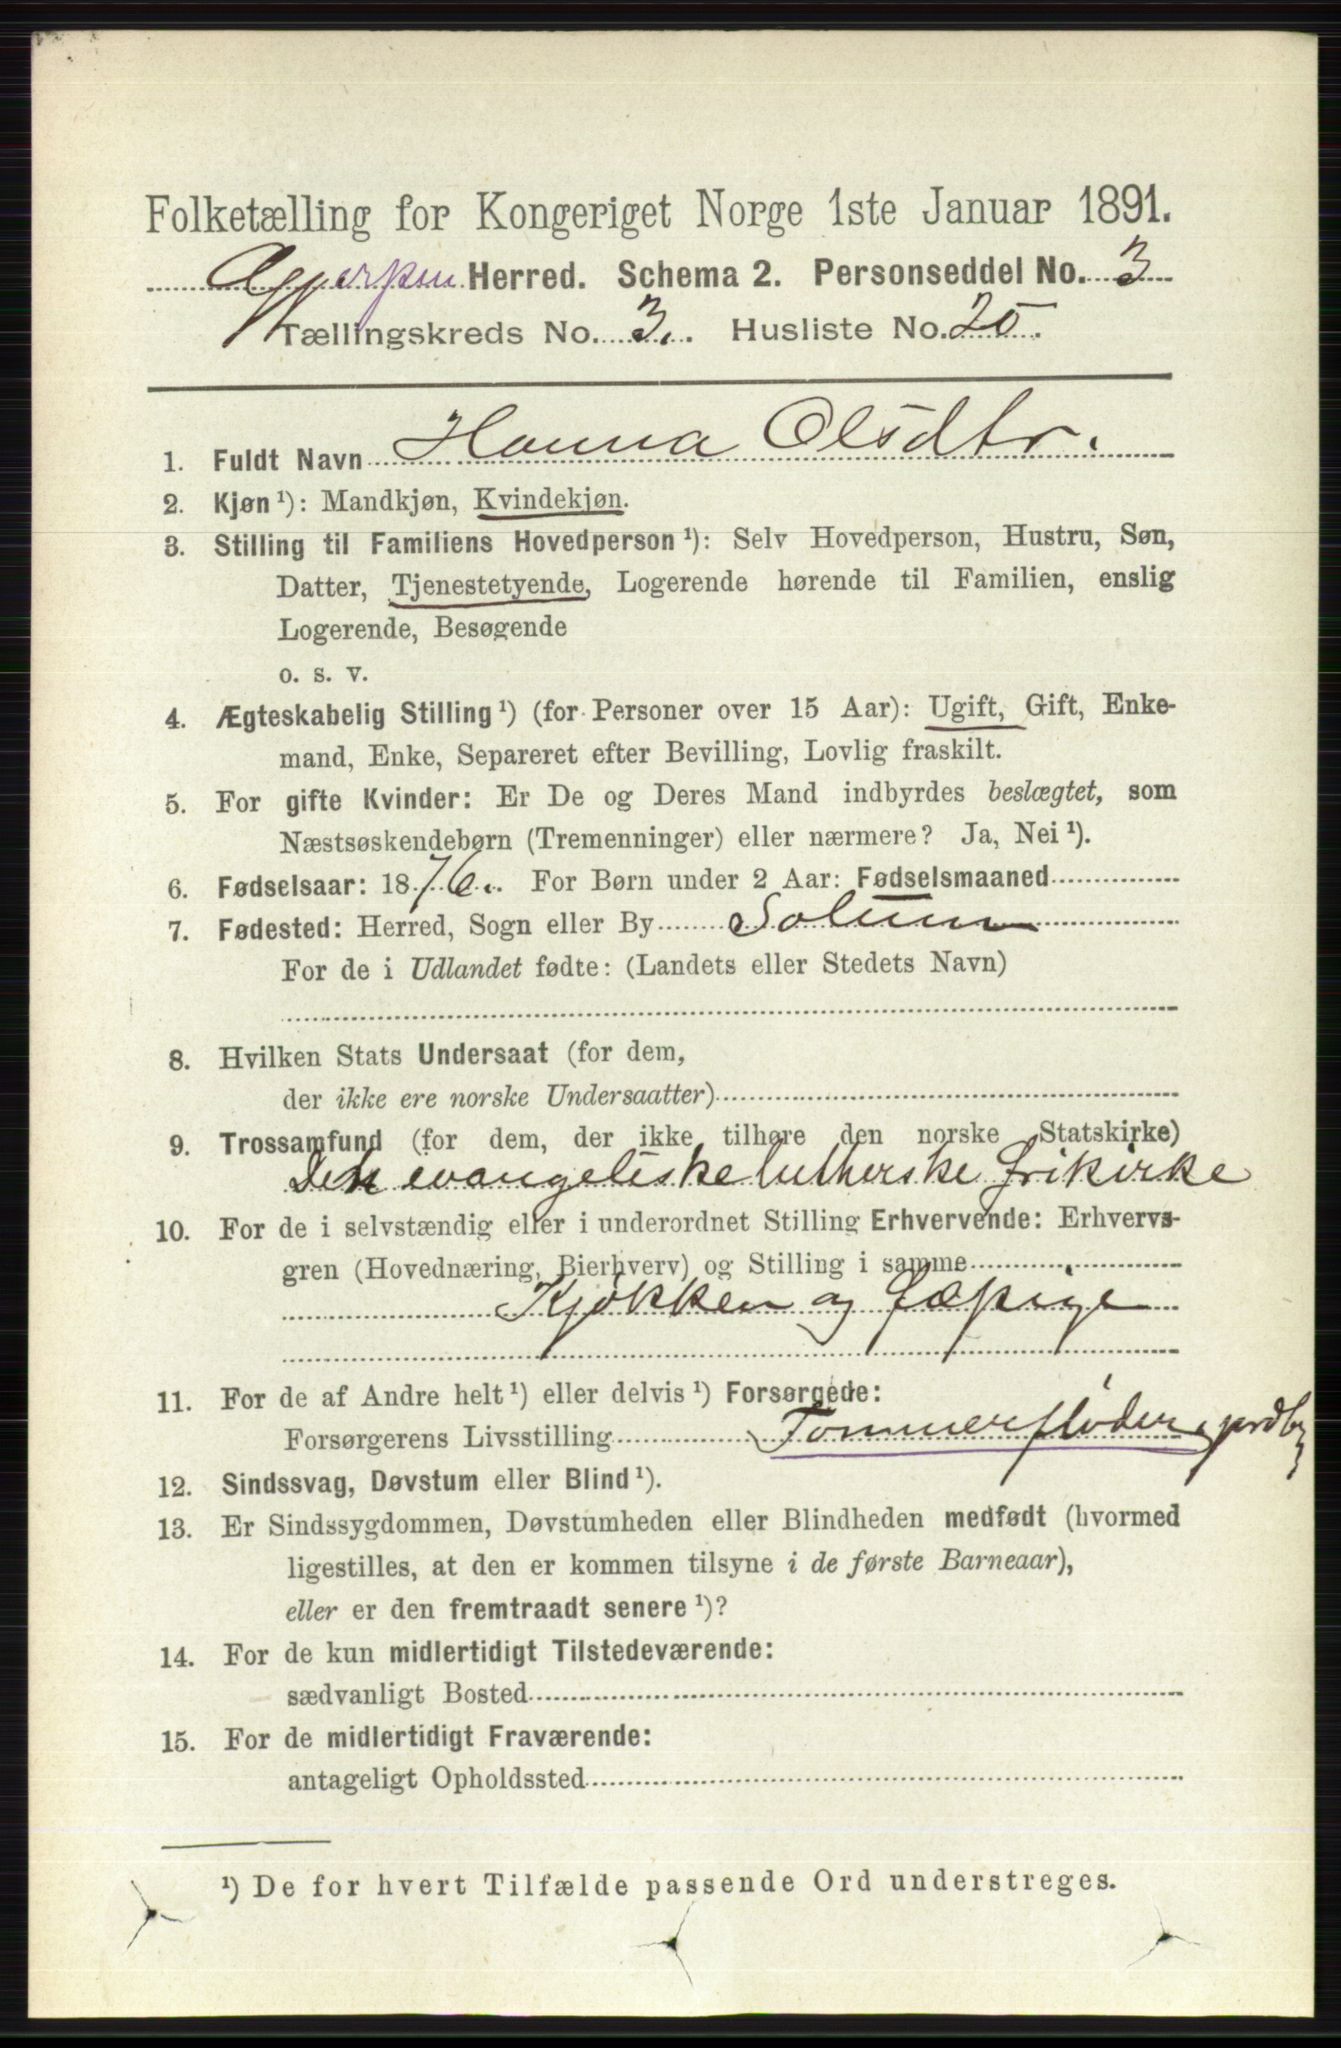 Folketælling for Kongeriget Norge 1ste Januar 1891.
Gjerpen Herred. Schema 2. Personseddel No. 3
Tællingskreds No. 3. Husliste No. 20.
1. Fuldt Navn Hanna Olsdtr.
2. Kjøn ¹): Mandkjøn, Kvindekjøn.
3. Stilling til Familiens Hovedperson ¹): Selv Hovedperson, Hustru, Søn,
Datter, Tjenestetyende, Logerende hørende til Familien, enslig
Logerende, Besøgende
o. s. v.
4. Ægteskabelig Stilling ¹) (for Personer over 15 Aar): Ugift, Gift, Enke-
mand, Enke, Separeret efter Bevilling, Lovlig fraskilt.
5. For gifte Kvinder: Er De og Deres Mand indbyrdes beslægtet, som
Næstsøskendebørn (Tremenninger) eller nærmere? Ja, Nei ¹).
6. Fødselsaar: 1876. For Børn under 2 Aar: Fødselsmaaned
7. Fødested: Herred, Sogn eller By Solum
For de i Udlandet fødte: (Landets eller Stedets Navn)
8. Hvilken Stats Undersaat (for dem,
der ikke ere norske Undersaatter)
9. Trossamfund (for dem, der ikke tilhøre den norske Statskirke)
Den evangeliske lutherske frikirke
10. For de i selvstændig eller i underordnet Stilling Erhvervende: Erhvervs-
gren (Hovednæring, Bierhverv) og Stilling i samme
Kjøkken og fæpige
11. For de af Andre helt ¹) eller delvis ¹) Forsørgede:
Forsørgerens Livsstilling Tømmerfløder
12. Sindssvag, Døvstum eller Blind ¹).
13. Er Sindssygdommen, Døvstumheden eller Blindheden medfødt (hvormed
ligestilles, at den er kommen tilsyne i de første Barneaar),
eller er den fremtraadt senere ¹)?
14. For de kun midlertidigt Tilstedeværende:
sædvanligt Bosted
15. For de midlertidigt Fraværende:
antageligt Opholdssted
¹) De for hvert Tilfælde passende Ord understreges.